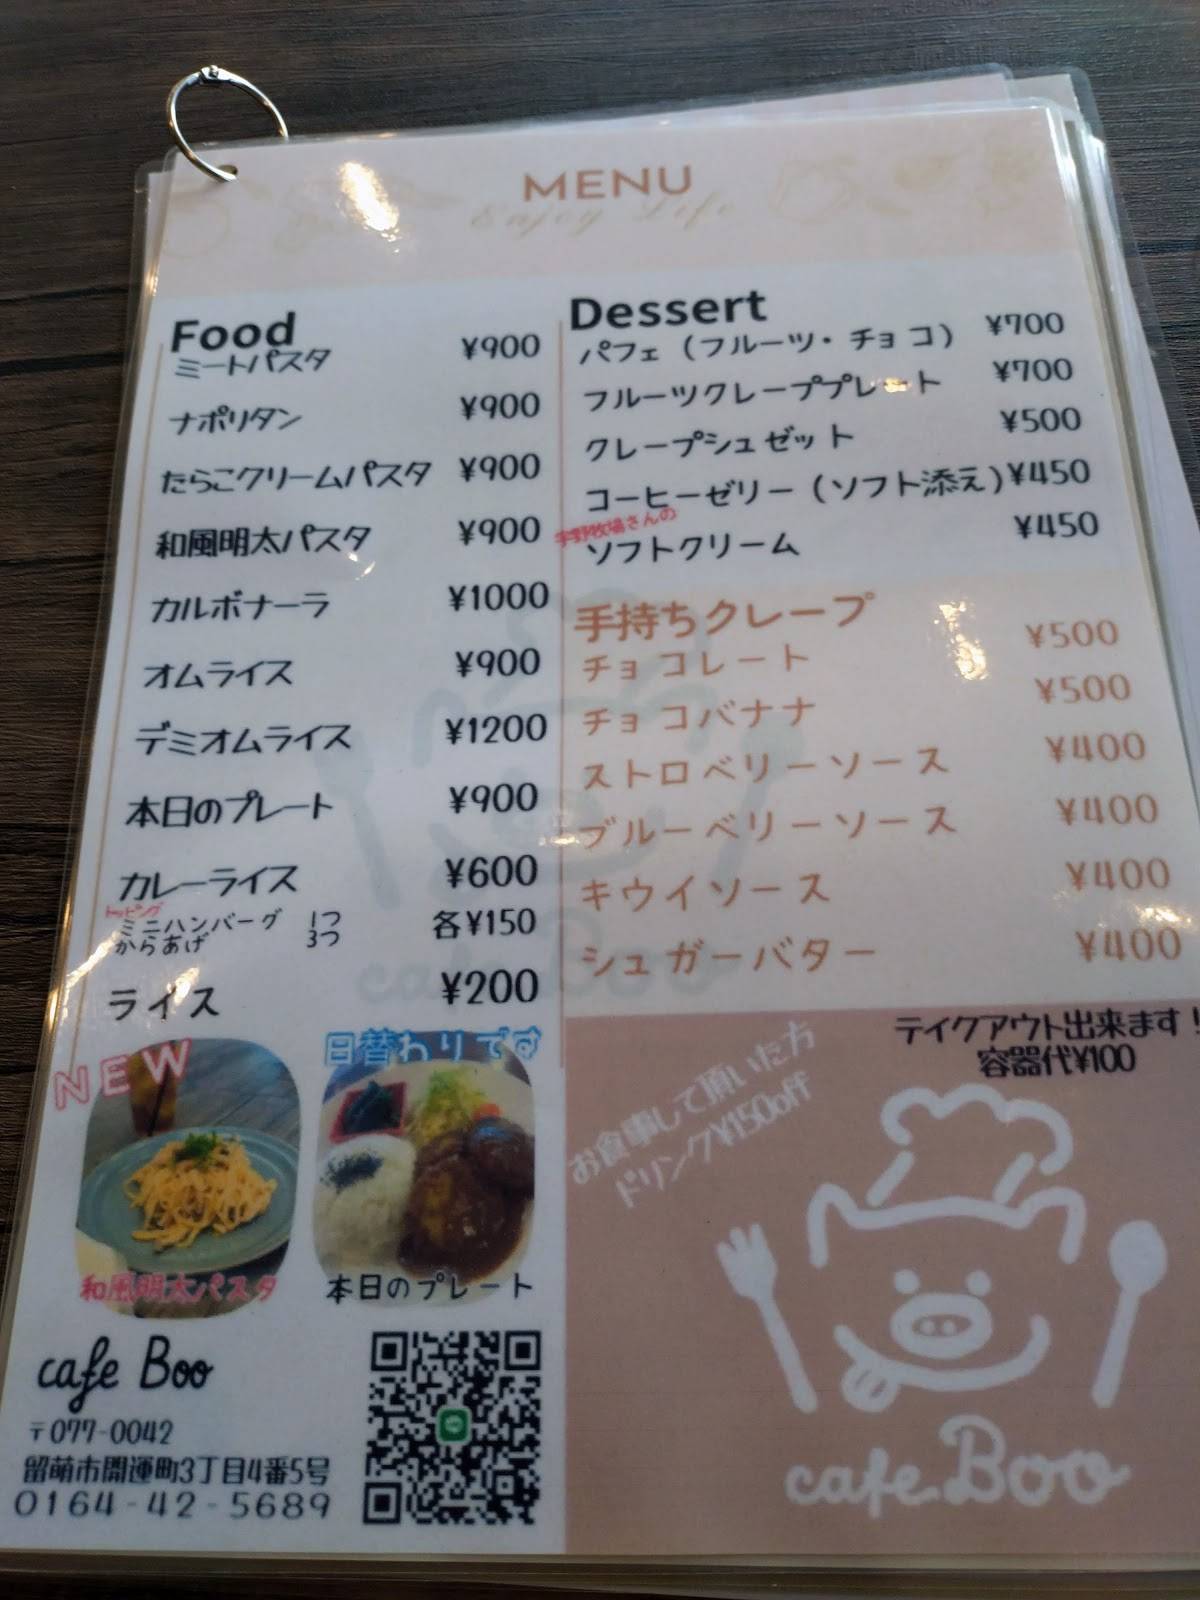 MENU
Enjoy Life
Food
ミートパスタ ¥900
ナポリタン ¥900
たらこクリームパスタ ¥900
和風明太パスタ ¥900
カルボナーラ ¥1000
オムライス ¥900
デミオムライス ¥1200
本日のプレート ¥900
カレーライス ¥600
トッピング
ミニハンバーグ 1つ 各¥150
からあげ 3つ
ライス ¥200
Dessert
パフェ (フルーツ・チョコ) ¥700
フルーツクレーププレート ¥700
クレープシュゼット ¥500
コーヒーゼリー (ソフト添え) ¥450
宇野牧場さんの
ソフトクリーム ¥450
手持ちクレープ
チョコレート ¥500
チョコバナナ ¥500
ストロベリーソース ¥400
ブルーベリーソース ¥400
キウイソース ¥400
シュガーバター ¥400
テイクアウト出来ます!
容器代¥100
お食事して頂いた方
ドリンク¥150off
NEW
和風明太パスタ
日替わりです
本日のプレート
cafe Boo
〒077-0042
留萌市開運町3丁目4番5号
0164-42-5689
cafe Boo
cafe Boo